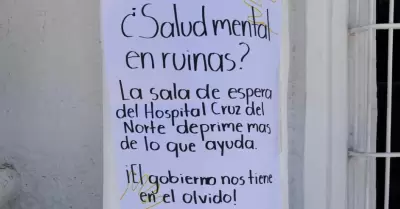 ¿Salud mental
en ruinas?
La sala de espera
del Hospital Cruz del
Norte deprime mas
de lo que ayuda.
¡El gobierno nos tiene
en el olvido!